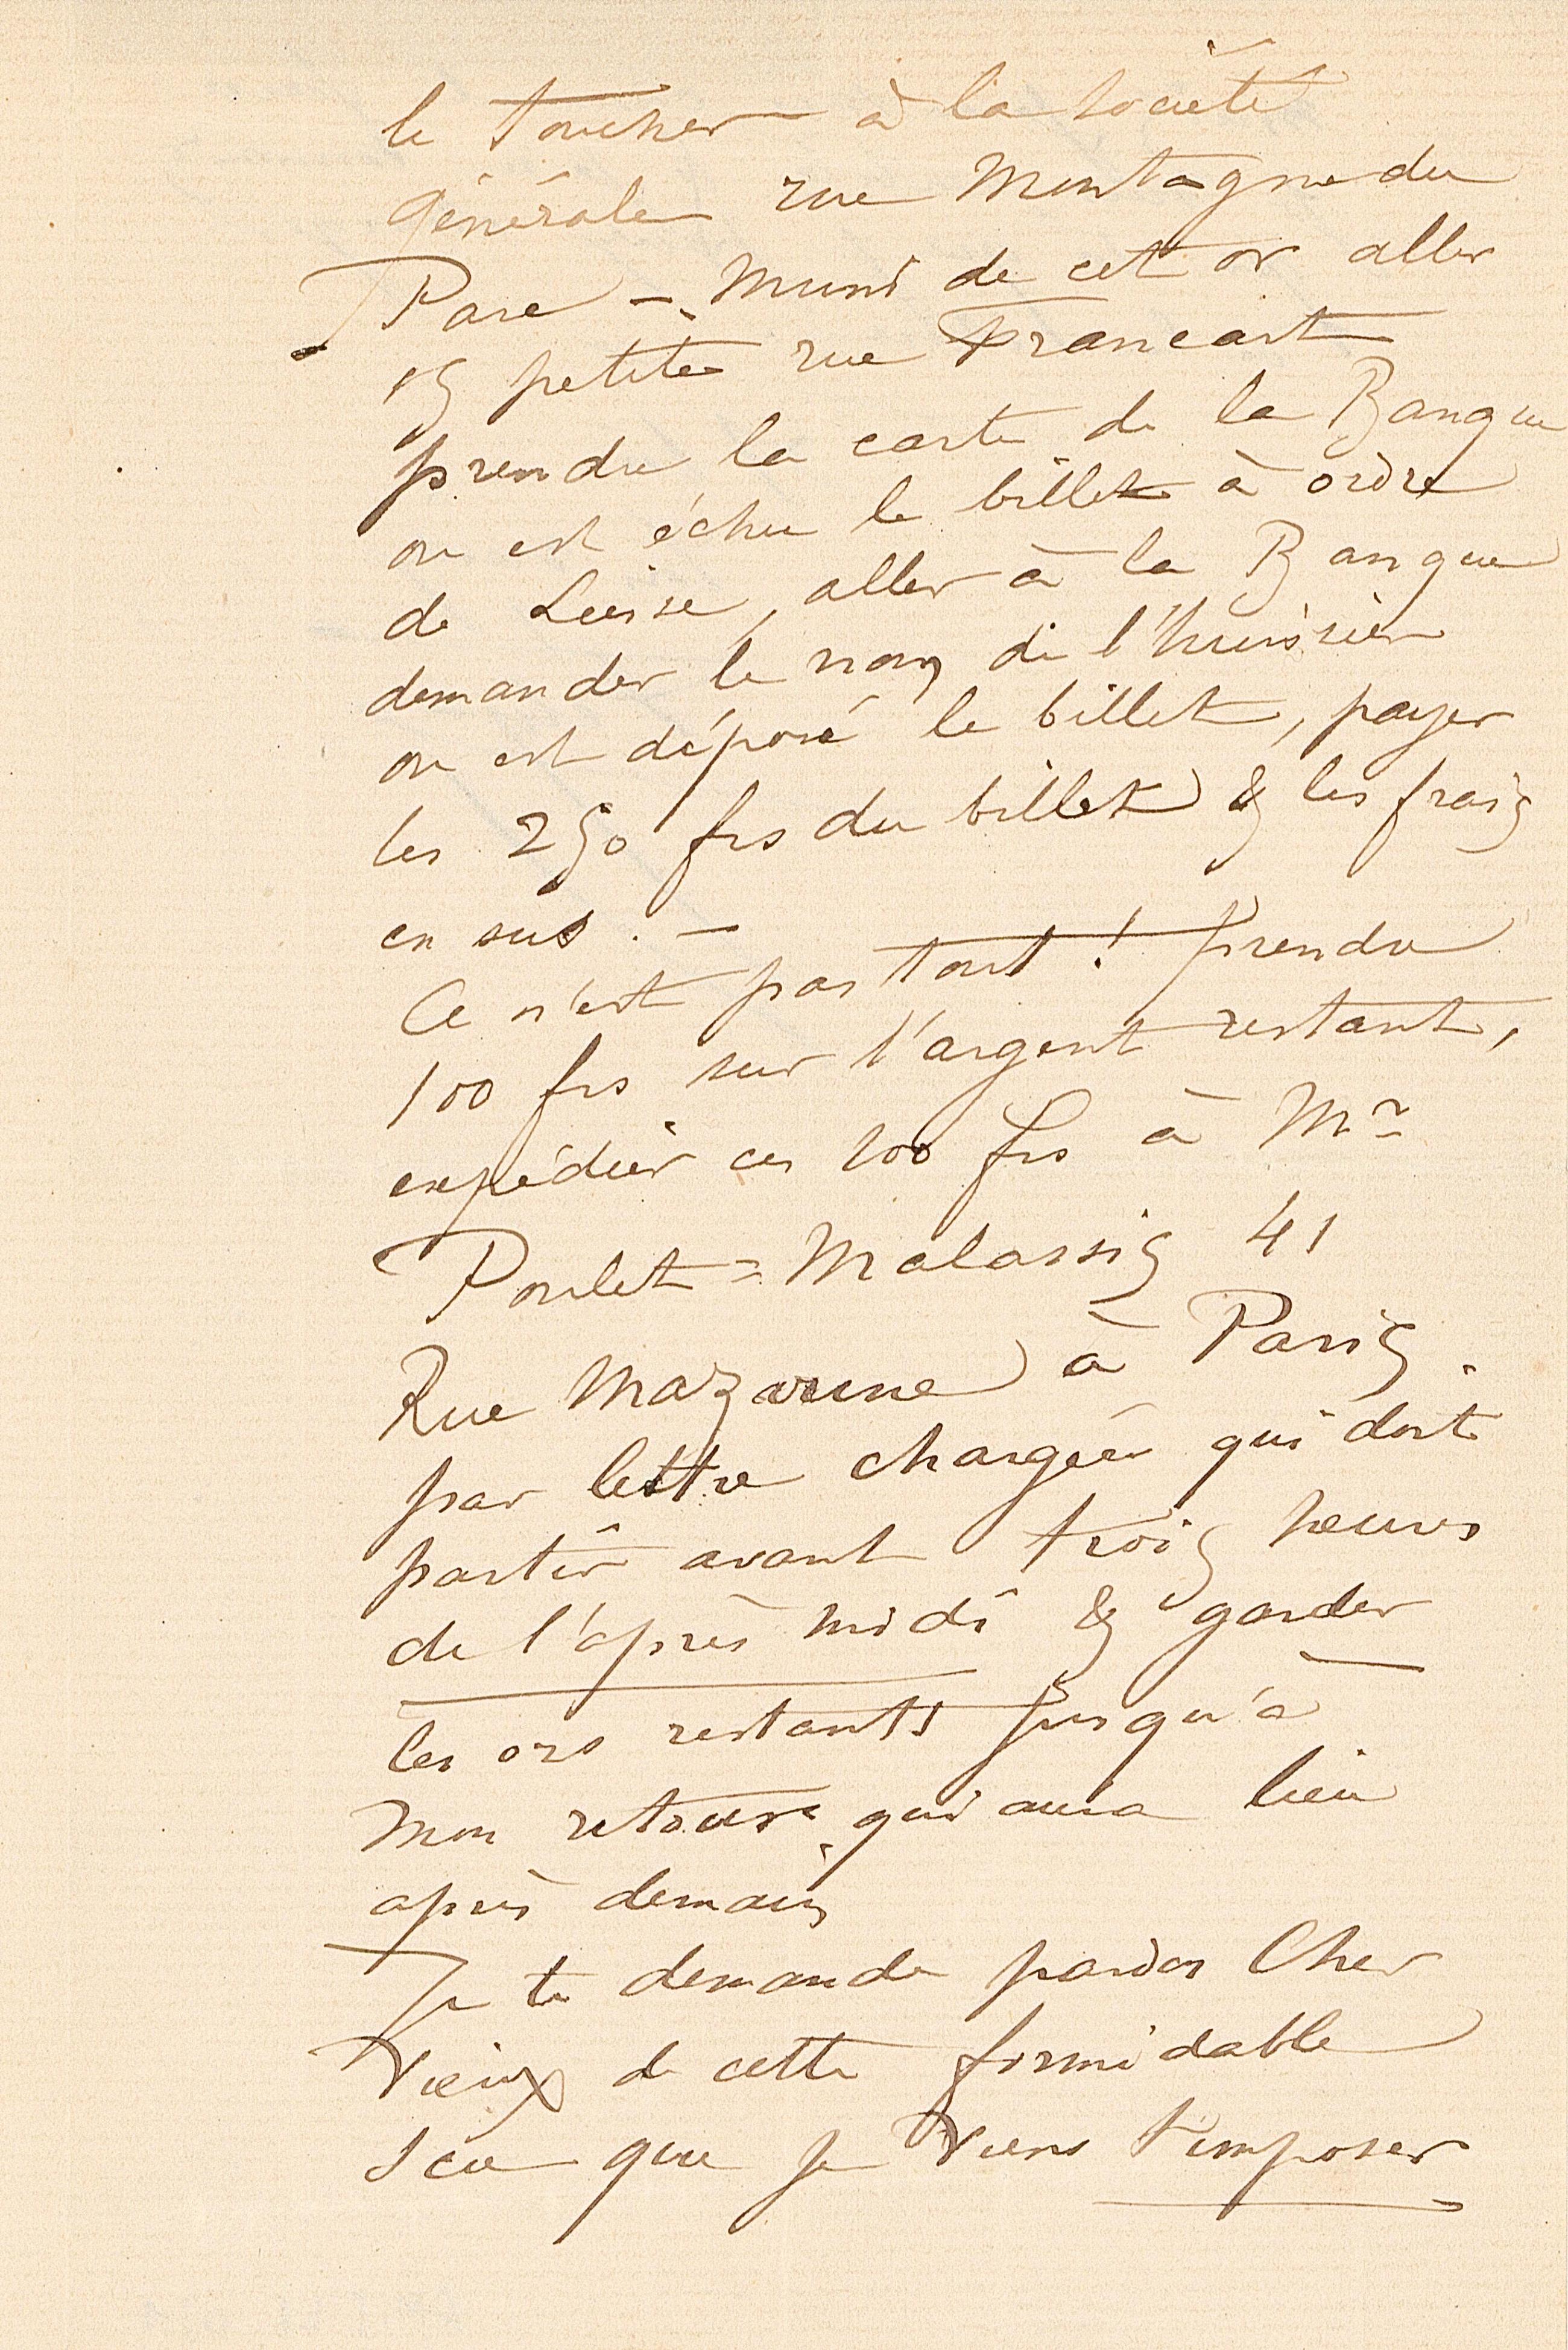 le toucher à la Société
Générale rue Montagne du
Parc – Muni de cet or aller
15 petite rue Francart
prendre la carte de la Banque
ou est échu le billet à ordre
de Luise, aller à la Banque
demander le nom de l'huissier
ou est déposé le billet, payer
les 250 frs du billet & les frais
en sus. –
Ce n'est pas tout ! prendre
100 frs sur l'argent restant,
expédier ces 100 frs à Mr
Poulet=Malassis 41
Rue Mazarine à Paris.
par lettre chargée qui doit
partir avant trois heures
de l'après midi & garder
les ors restants jusqu'à
mon retour qui aura lieu
après demain
Je te demande pardon Cher
Vieux de cette formidable
scie que je viens t'imposer